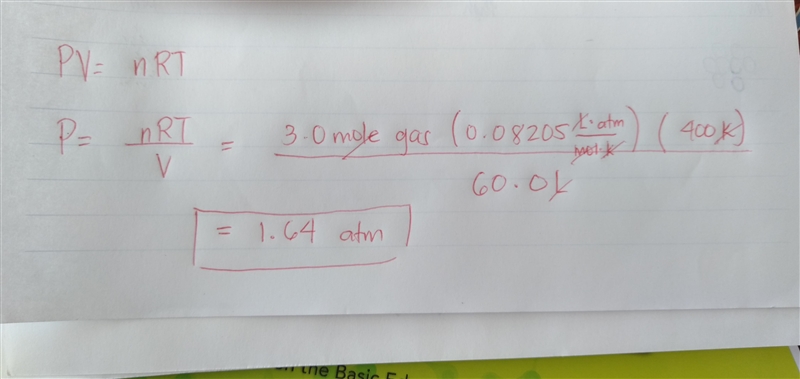 PV = nRT
P = nRT / V = 3.0 mole gas (0.08205 L·atm / mol·K) (400 K) / 60.0 L
= 1.64 atm
the Basic